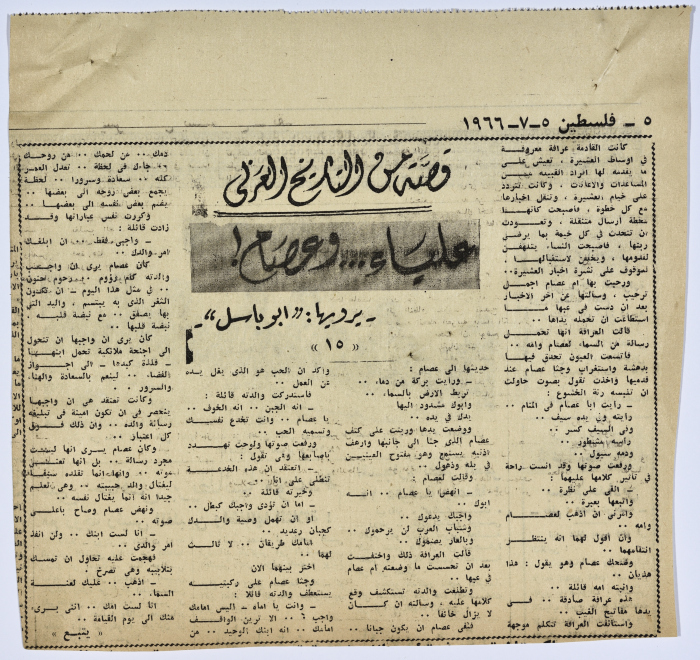 ٥ - فلسطين ٥-٧-١٩٦٦
قصة من التاريخ العربي
علياء... وعصام!
- يرويها: «ابو باسل» -
« ١٥ »
كانت القادمة عرافة معروفة
في اوساط العشيرة ، تعيش على
ما يقدمه لها افراد القبيلة من
المساعدات والاعانات ، وكانت تتردد
على خيام العشيرة ، وتنقل اخبارها
مع كل خطوة ، فأصبحت كأنهــا
محطة ارسال متنقلة ، وتعــودت
ان تتحدث في كل خيمة بما يرضي
ربتها ، فأصبحت النساء يتلهفن
لقدومها ، ويخفين لاستقبالها ،
للوقوف على نشرة اخبار العشيرة..
ورحبت بها ام عصام اجمــل
ترحيب ، وسألتها عن آخر الاخبار
بعد ان دست في عبها مــا
استطاعت ان تحمله يداها ..
قالت العرافة انها تحمــل
رسالة من السماء لعصام وامه ..
فاتسعت العيون تحدق فيهــا
بدهشة واستغراب وجثا عصام عند
قدميها واخذت تقول بصوت حاولت
ان تلبسه رنة الخشوع :
ـ رأيت ابا عصام في المنام ..
رأيته وفي يده سيف ..
وفي السيف كسر ..
رأسه مشطور ..
ودمه يسيل ..
ورفعت صوتها وقد آنست راحة
في تأثير كلامها عليهما :
ـ القى علي نظرة ..
واتبعها بعبرة ..
وأمرني ان اذهب لعصــام
وامه ..
وان اقول لهما انه ينتظــر
انتقامهما ..
وضحك عصام وهو يقول : هذا
هذيان ..
وانبته امه قائلة ..
ـ هذه عرافة صادقة .. فــي
يدها مفاتيح الغيب ..
واستأنفت العرافة تتكلم موجهة
حديثها الى عصام :
ـ ورأيت بركة من دماء، ..
تربط الارض بالسماء، ..
وابوك مشدود اليها
يدك في يده ..
ووضعت يدها وربتت على كتف
عصام الذي جثا الى جانبها وارهف
اذنيه يستمع وهو مفتوح العينيــن
في بله وذهول ..
وقالت لعصام :
ـ انهض يا عصام .. انــه
ابوك ..
واجبك يدعوك ..
وشباب العرب لن يرحموك ..
وبالعار يصموك ..
قالت العرافة ذلك واختفــت
بعد ان تحسست ما وضعته ام عصام
في عبها ..
وتطلعت والدته تستكشف وقع
كلامها عليه ، وسألته ان كــان
لا يزال خائفا ..
فنفى عصام ان يكون جبانا ..
واكد ان الحب هو الذي يغل يــده
عن العمل ..
فاستدركت والدته قائلة :
ـ انه الجبن .. انه الخوف ..
يا عصام .. وانت تخدع نفســك
وتسميه الحب ..
ورفعت صوتها ولوحت تهــدد
بأصابعها وهي تقول :
ـ أتعتقد ان هذه الخدعــة
تنطلي على ابنا ..
وخيرته قائلة ..
ـ اما ان تؤدي واجبك كبطل ..
او ان تهمل وصية والــدك
كجبان رعديد ..
أمامك طريقان .. لا ثالــث
لهما ..
اختر بينهما الآن
وجثا عصام على ركبتيــه
يستعطف والدته قائلا :
ـ وانت يا اماه ـ اليس امامك
واجب ؟ .. الا ترين الواقــف
امامك .. انه ابنك الوحيد .. من
دمك .. من لحمك .. من روحــك
.. جاءك في لحظة .. تعدل العمــر
كله .. سعادة وسرورا .. لحظة
يجمع بعض زوجه الى بعضها ..
يضم بعض نفسه الى بعضهـا ..
وكررت نفس عباراتها وقــد
زادت قائلة :
ـ واجبي فقط .. ان ابلغــك
امر والدك ..
كان عصام يرى ان واجــب
والدته كأم رؤوم .. رحوم حنون
.. في مثل هذا اليوم ـ ان تكــون
الثغر الذي به يبتسم ، واليد التي
بها يصفق .. مع نبضة قلبــه ،
نبضة قلبها ..
كان يرى ان واجبها ان تتحول
الى اجنحة ملائكية تحمل ابنهــا
ـ فلذة كبدها ـ الى اجــواز
الفضاء .. لينعم بالسعادة والهناء
والسرور ..
وكانت تعتقد هي ان واجبهــا
ينحصر في ان تكون امينة في تبليغه
رسالة والده .. وان ذلك فــوق
كل اعتبار ..
وكان عصام يسرى انها ليســت
مجرد رسالة .. بل انها تعتبــر
ليغتال والد حبيبته .. وهي تعلم
جيدا انه انما يغتال نفسه ..
ونهض عصام وصاح بأعلــى
صوته ..
ـ انا لست ابنك .. ولن انفذ
امر والدي ..
فهجمت عليه تحاول ان تمســك
بتلابيبه وهي تصرخ .
ـ اذهب .. عليك لعنــة
السماء ..
انا لست امك .. انني بريء،
منك الى يوم القيامة ..
« يتبــع »